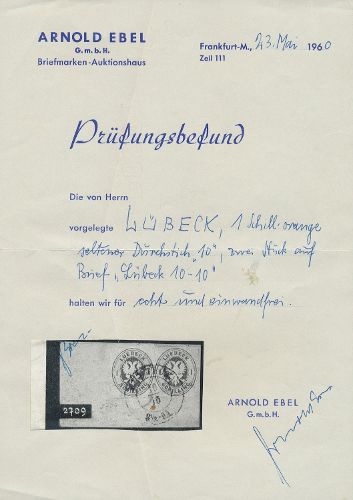 ARNOLD EBEL
G.m.b.H.
Briefmarken-Auktionshaus
Frankfurt-M., 23. Mai 1960
Zeil 111
Prüfungsbefund
Die von Herrn
vorgelegte LÜBECK, 1 Schill. orange
seltener Durchstich "10", zwei Stück auf
Brief "Lübeck 10-10"
halten wir für echt und einwandfrei.
LUEBECK LUEBECK
2709
ARNOLD EBEL
G.m.b.H.